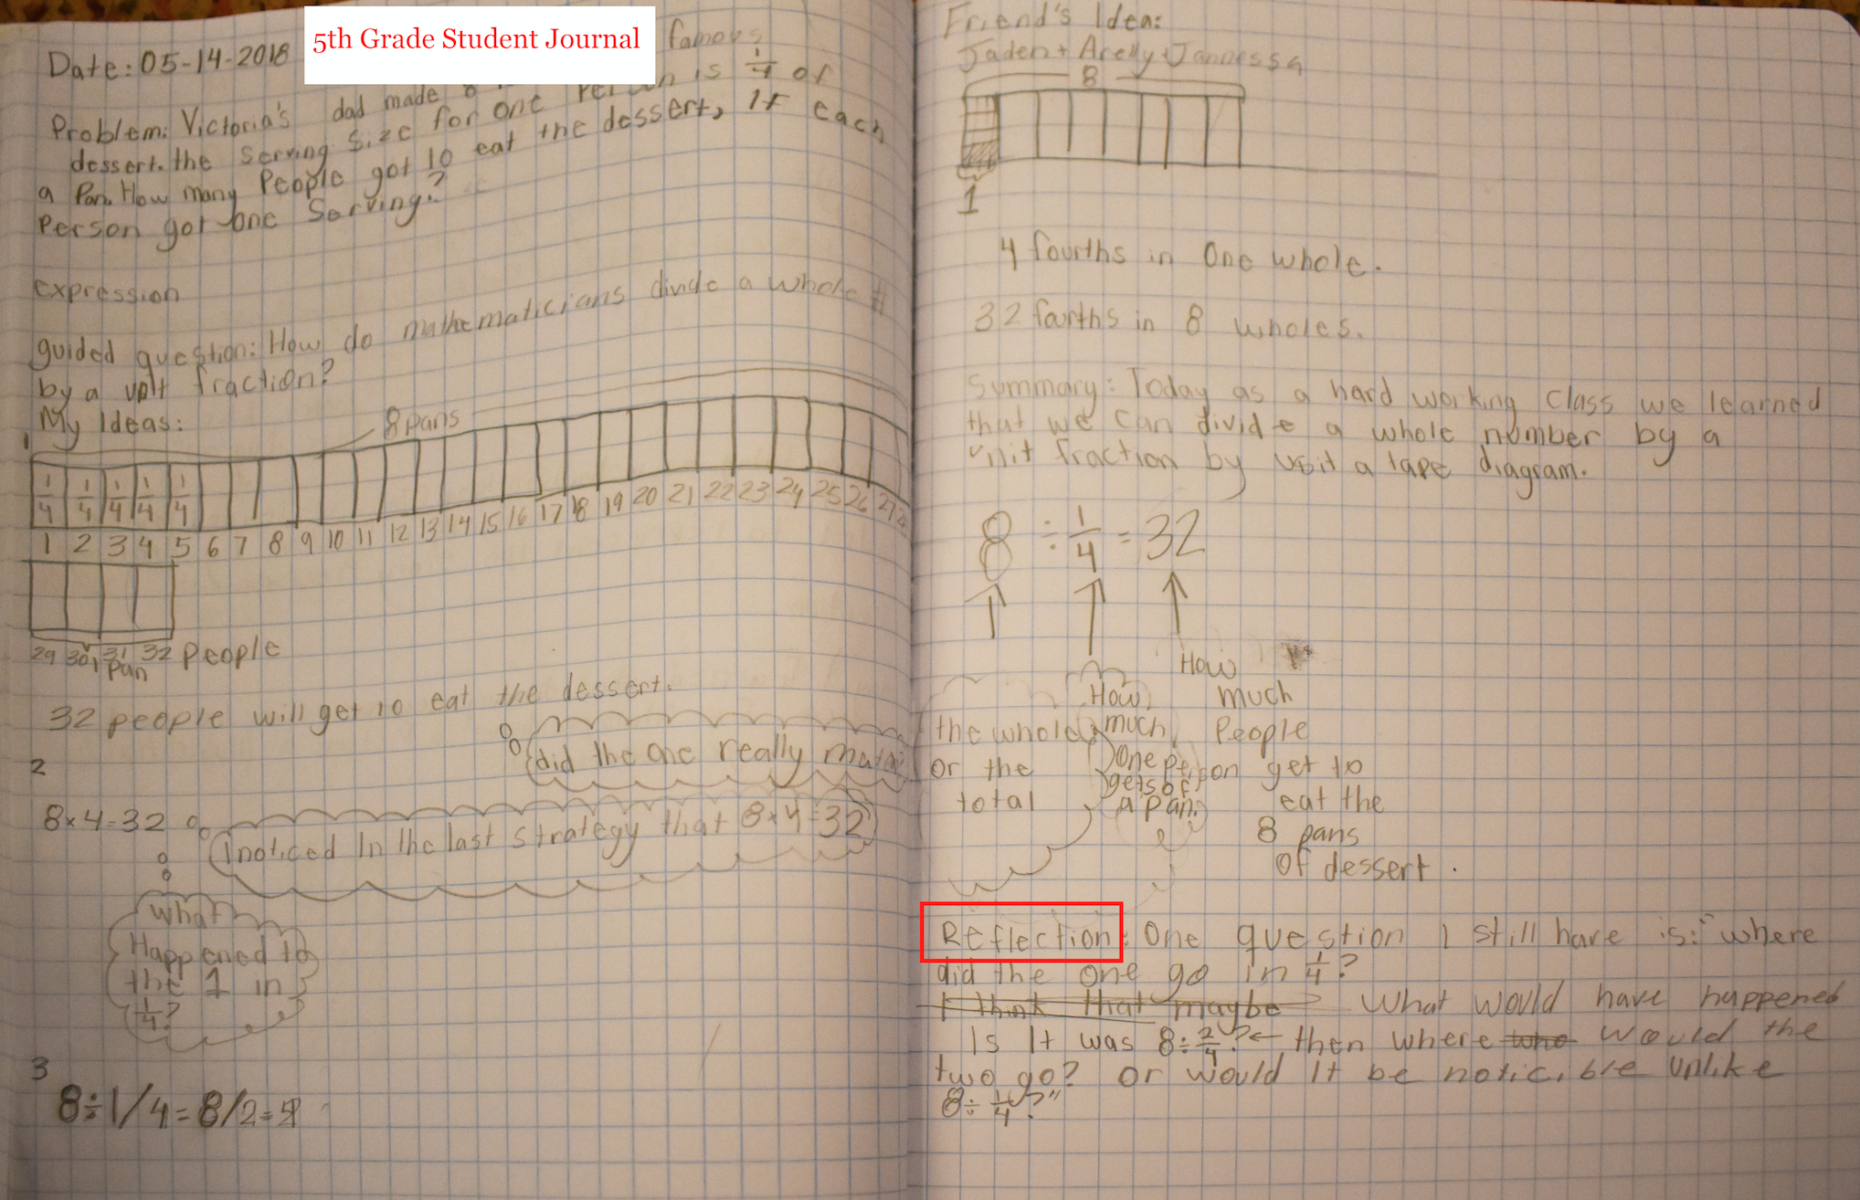 5th Grade Student Journal
Date: 05-14-2018
famous
Problem: Victoria's dad made 8
dessert. the Serving Size for one Person is 1/4 of
a Pan. How many People got to eat the dessert, If each
Person got one Serving?
expression
guided question: How do mathematicians divide a whole #
by a unit fraction?
My Ideas:
8 pans
1/4 1/4 1/4 1/4 1/4
1 2 3 4 5 6 7 8 9 10 11 12 13 14 15 16 17 18 19 20 21 22 23 24 25 26 27 28
29 30 31 32 People
1 Pan
32 people will get to eat the dessert.
did the one really matter
2
8x4=32
I noticed In the last strategy that 8x4=32
what
Happened to
the 1 in
1/4?
3
8÷1/4=8/2=
Friend's Idea:
Jaden + Arelly + Jannessa
8
1
4 fourths in One whole.
32 fourths in 8 wholes.
Summary: Today as a hard working Class we learned
that we can divide a whole number by a
unit fraction by a tape diagram.
8 ÷ 1/4 = 32
the whole
or the
total
How
much
One person
gets of
A pan.
How
much
People
get to
eat the
8 pans
Of dessert.
Reflection: One question I still have is: "where
did the one go in 1/4?
I think that maybe What would have happened
Is It was 8÷2/4? ← then where who would the
two go? or would It be noticible unlike
8÷1/4?"